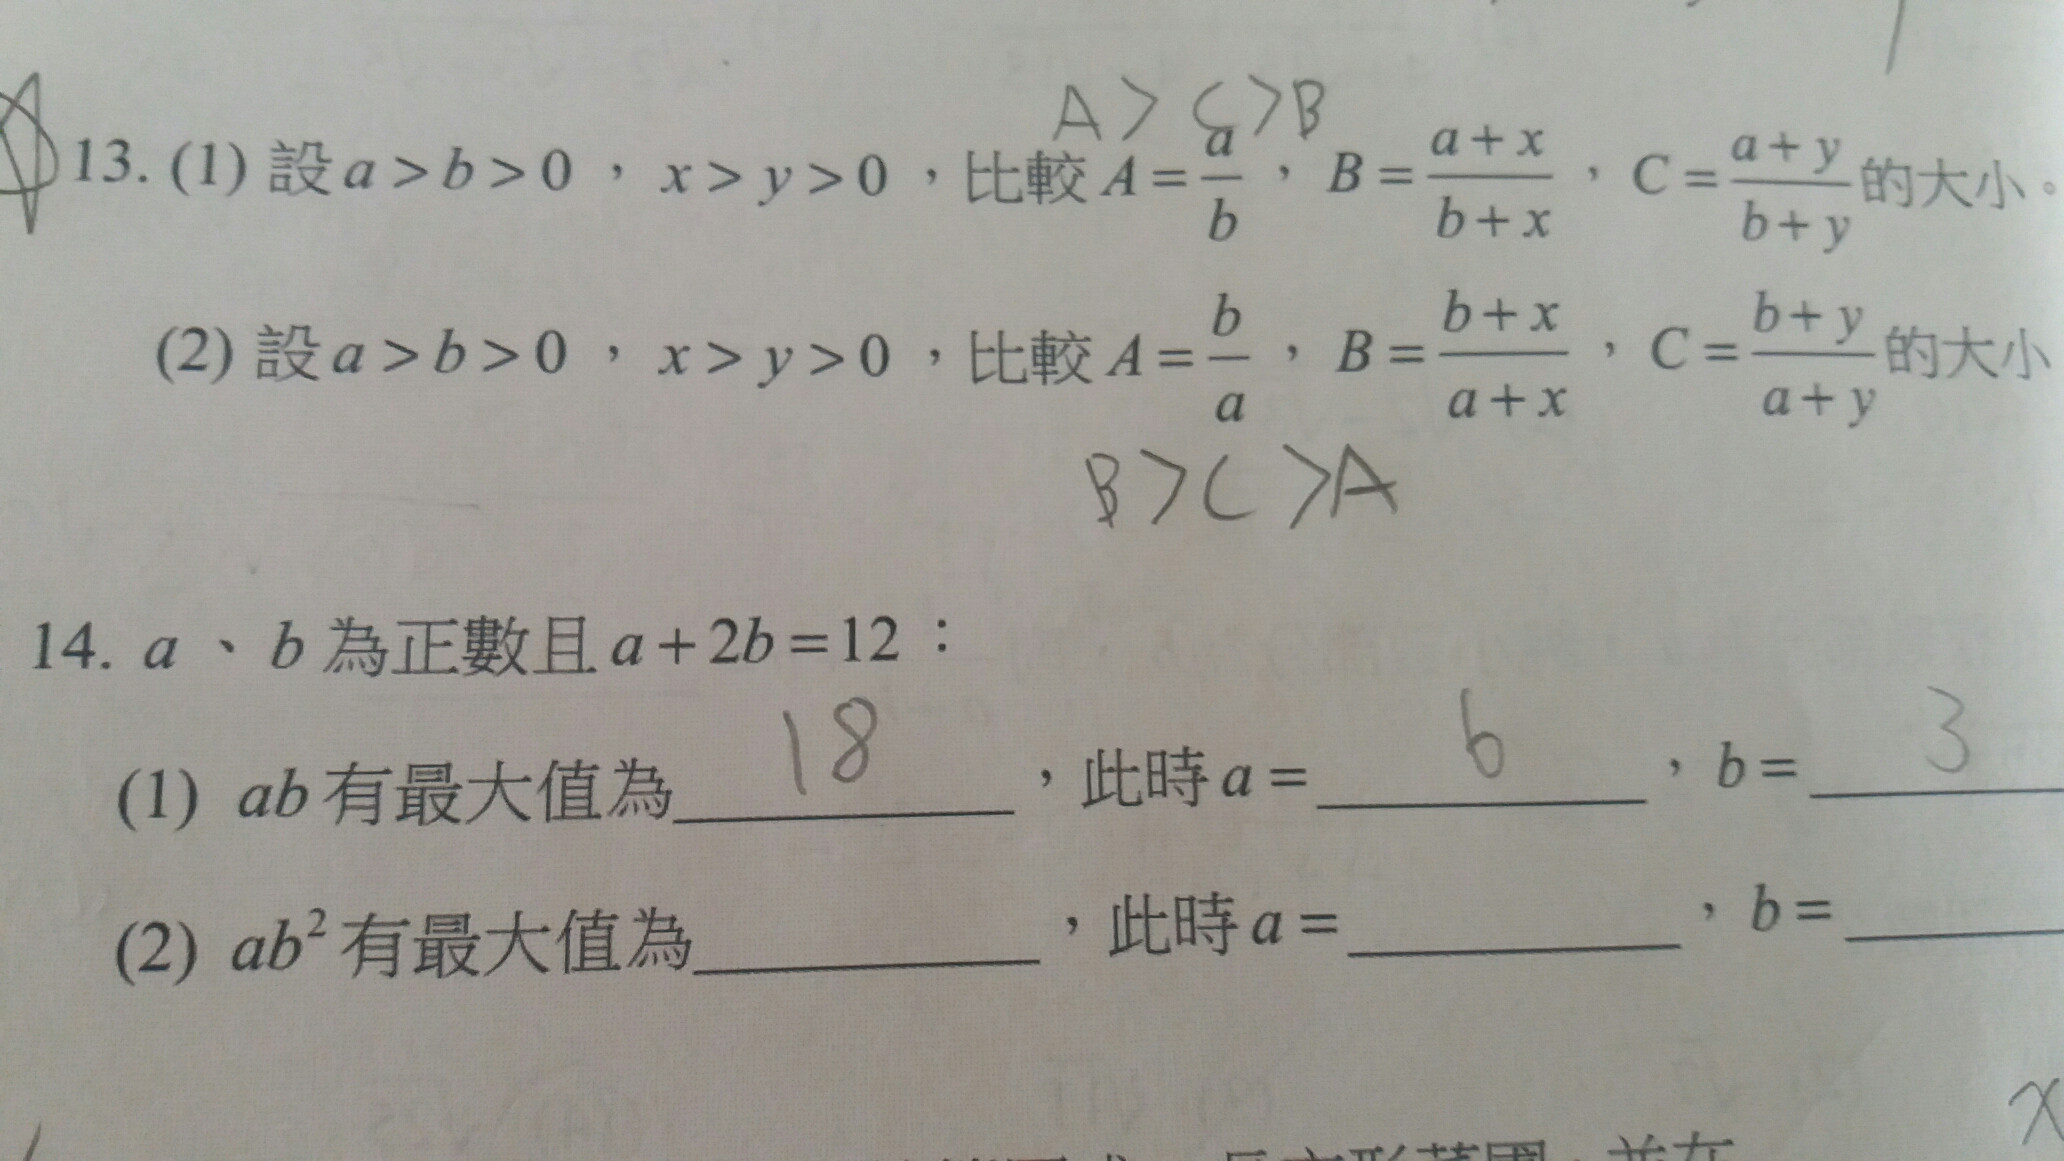 A > C > B
13. (1) 設 a > b > 0 , x > y > 0 , 比較 A = a/b , B = (a+x)/(b+x) , C = (a+y)/(b+y) 的大小。
(2) 設 a > b > 0 , x > y > 0 , 比較 A = b/a , B = (b+x)/(a+x) , C = (b+y)/(a+y) 的大小
B > C > A
14. a 、 b 為正數且 a + 2b = 12 :
(1) ab 有最大值為 18 , 此時 a = 6 , b = 3
(2) ab² 有最大值為______ , 此時 a = ______ , b = ______
x